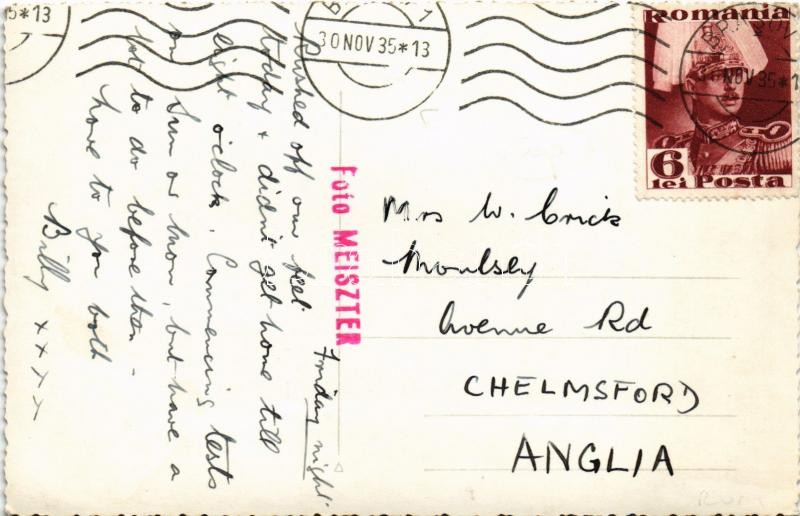 5*13
30 NOV 35*13
30 NOV 35*1
Romania
6
lei Posta
Friday night.
Rushed off our feet
today & didn't get home till
eight o'clock. Commencing tests
on Sun or Mon, but have a
lot to do before then -
Love to you both
Billy x x x x
Foto MEISZTER
Mrs W. Crick
Moulsey
Avenue Rd
CHELMSFORD
ANGLIA